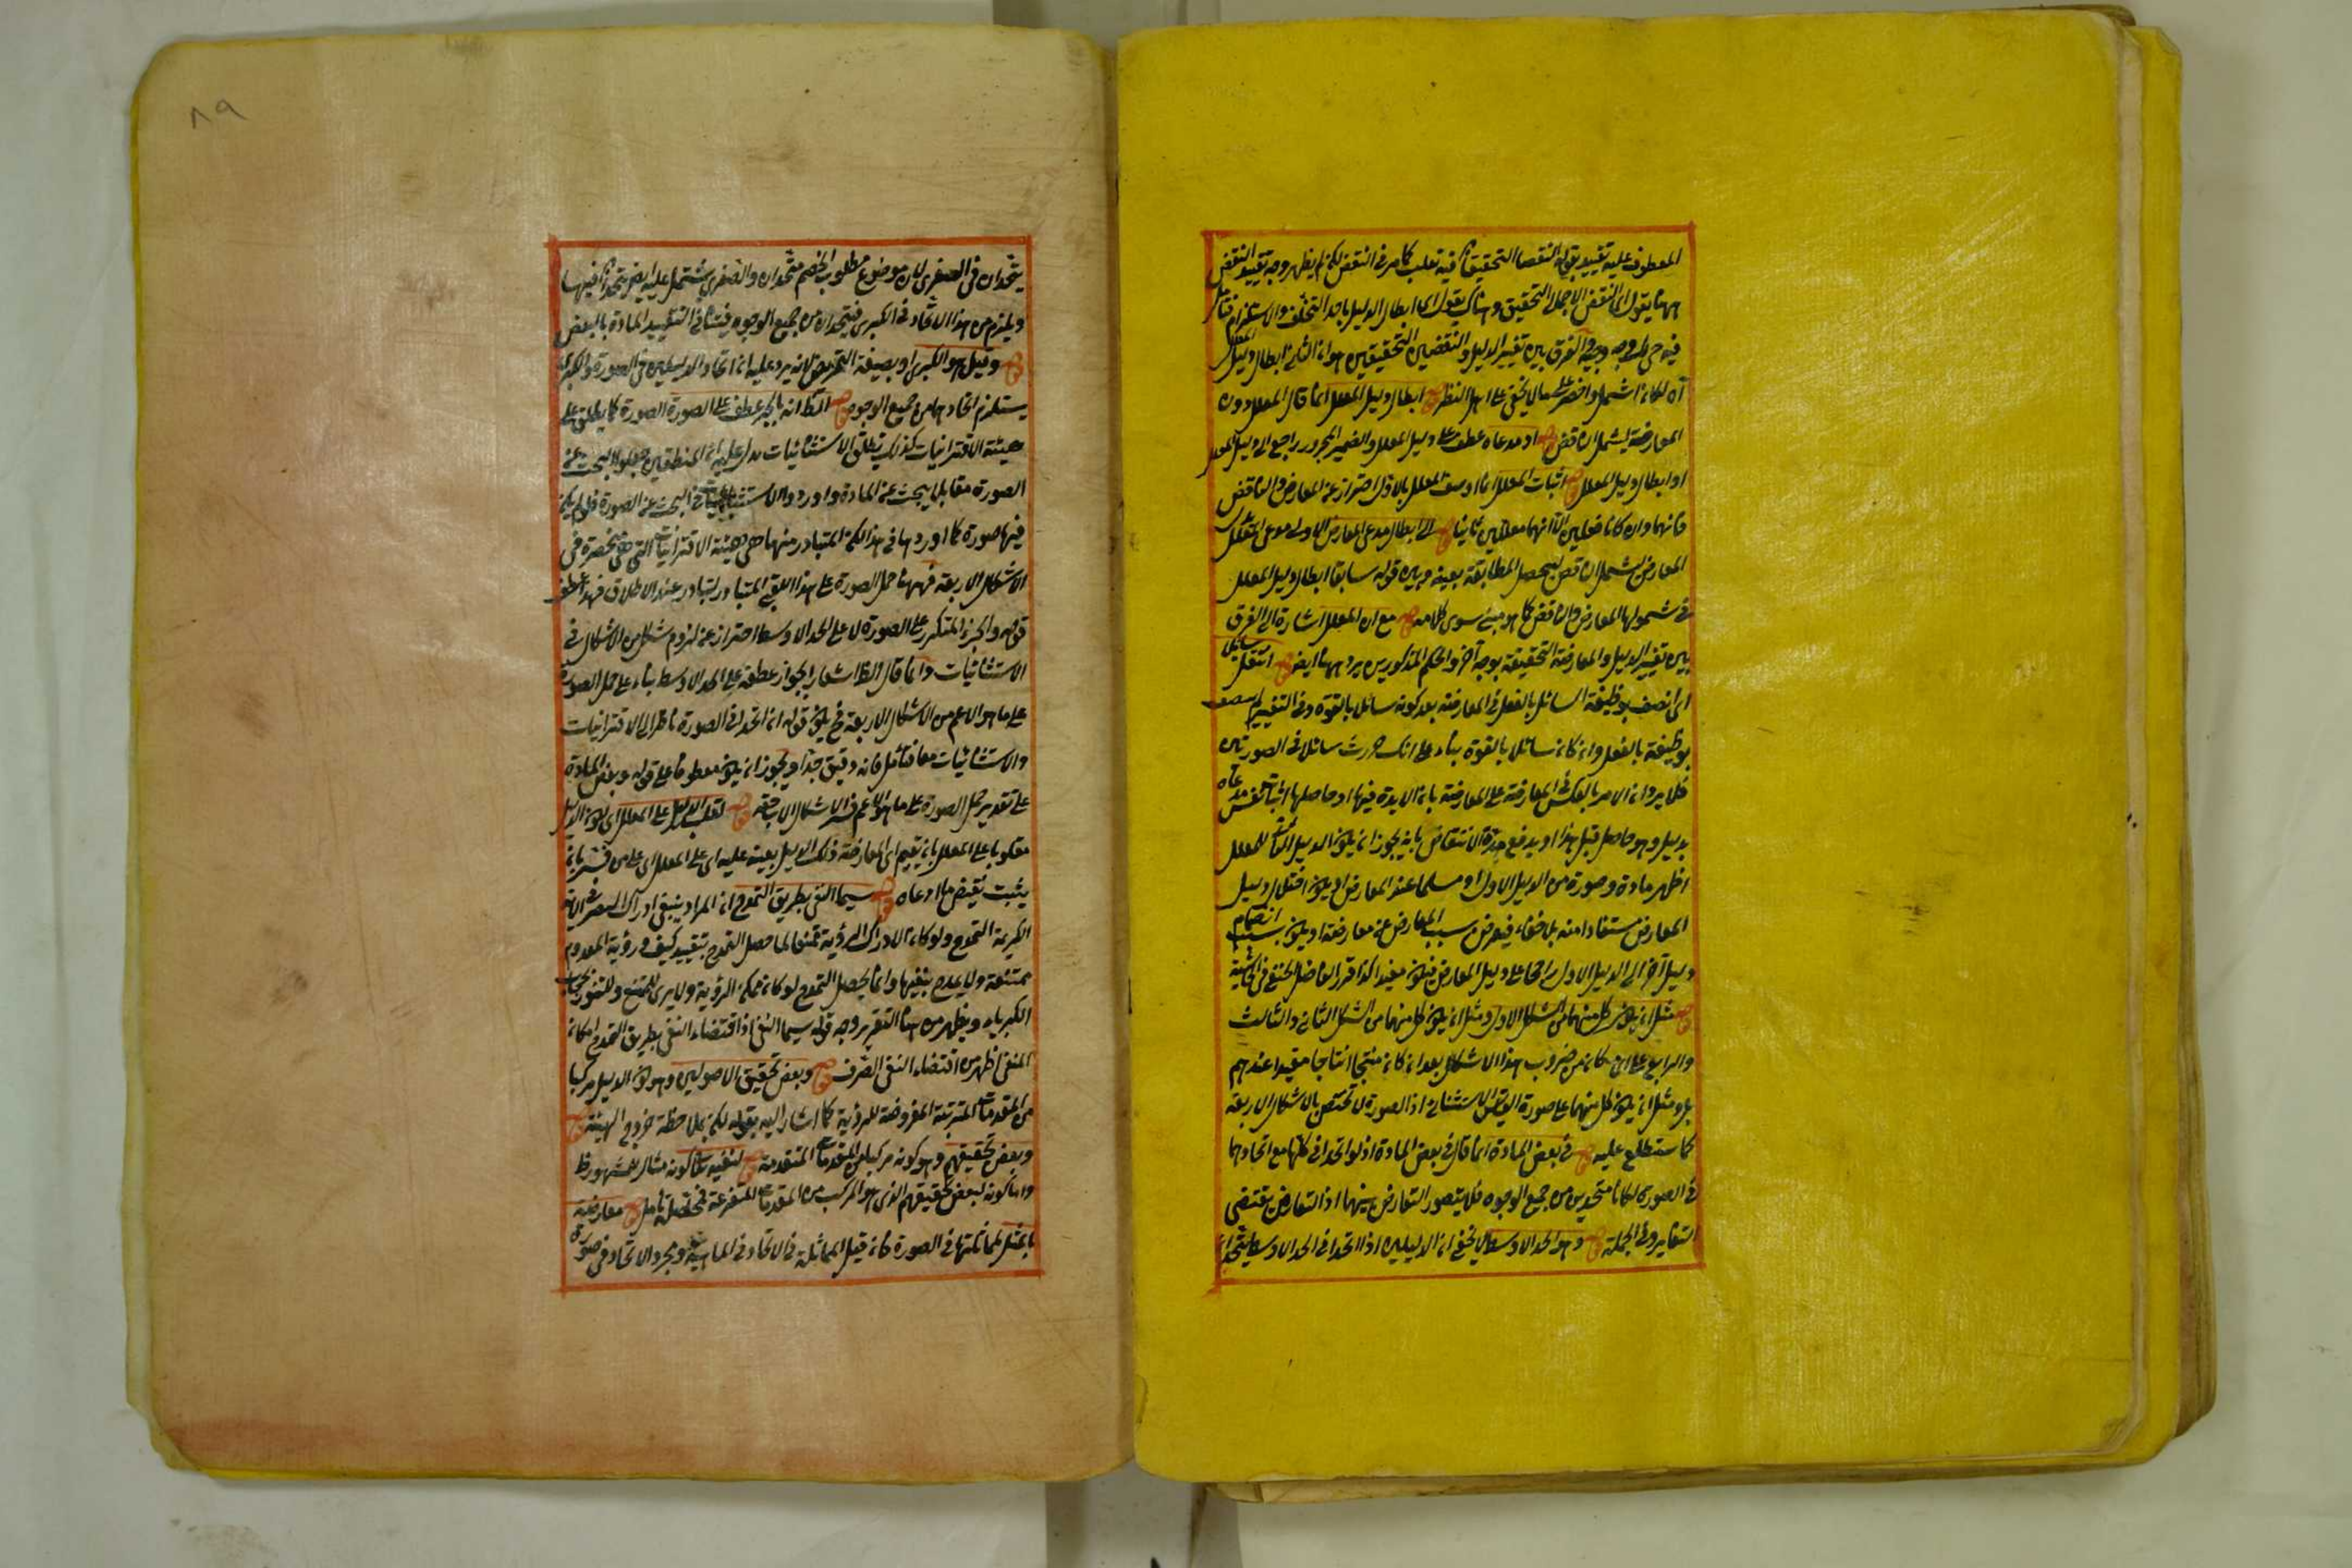 المعطوف عليه تقييد بقوله النقضا التحقيقا فيه تغليب كما مر في النقض لكن لم يظهر وجه تقييد النقض
ههنا بقول اي النقض الاجمالي التحقيق وهناك بقول اي ابطال الدليل باحد التخلف والاستلزام فتأمل
فيه حتى وجه الفرق بين تغيير الدليل والنقضين التحقيقين هو ان الثاني ابطال دليل المعلل
اه لكان اشمل واخصر على ما لا يخفى على اهل النظر قوله ابطال دليل المعلل انما قال المعلل دون
المعارضة ليشمل الناقض قوله او مدعاه عطف على دليل المعلل والضمير المجرور راجع الى دليل المعلل
او ابطال دليل المعلل قوله اثبات المعلل انما وصف المعلل بالاول احتراز عن المعارض والناقض
فانهما وان كانا معللين الا انهما معللين ثانيا قوله الى ابطال مدعى المعارض الاولى مدعى المعلل
المعارض ليشمل الناقض ليحصل المطابقة بينه وبين قوله سابقا ابطال دليل المعلل
في شمولها المعارض والناقض كما هو مبنى سوى كلامه قوله مع ان المعلل اشارة الى الفرق
بين تغيير الدليل والمعارضة التحقيقة بوجه آخر والحكم المذكورين يرد ههنا ايض قوله استقل سائل
اي اتصف بوظيفة السائل بالفعل في المعارضة بعد كونه سائل بالقوة وفي التغيير لم يتصف
بوظيفة بالفعل وان كان سائل بالقوة بناء على انك صرت سائل في الصورتين
فلا يرد ان الامر بالعكس في المعارضة على المعارضة بان لا يدة فيها اد حاصلها اثبات نفس مدعاه
بدليل وهو حاصل قبل هذا او يدفع هذه الانتقاض بانه يجوز ان يكون الدليل الثاني للمعلل
اظهر مادة وصورة من الدليل الاول او مسلما عند المعارض او يكون اختلال دليل
المعارض مستفادا منه بل خفاء فيعرض بسبب المعارض عن معارضته او يكون بسبب انضمام
دليل آخر الى الدليل الاول راجحا على دليل المعارض فيكون مفيدا كذا قرر الفاضل الحنفي في الحاشية
قوله مثل ان يكون كل منهما من الشكل الاول ومثل ان يكون كل منهما من الشكل الثاني والثالث
والرابع على اي كان من ضروب هذا الاشكال بعد ان كان منتجا انتاجا مقيدا عندهم
بل ومثل ان يكون كل منهما على صورة القياس الاستثنائي اذ الصورة لا تختص بالاشكال الاربعة
كما ستطلع عليه قوله في بعض المادة انما قال في بعض المادة اذ لو اتحدا في كلها مع اتحادهما
في الصورة لكانا متحدين من جميع الوجوه فلا يتصور التعارض بينهما اذ التعارض يقتضى
التغاير في الجملة قوله وهو الحد الاوسط لا يخفى ان الدليلين اذا اتحدا في الحد الاوسط يتحدان
٨٩
يتحدان في الصغرى لان موضوع مطلوب الخصم متحدان والصغرى يشتمل عليه ايض يتحدان فيها
ويلزم من هذا الاتحاد في الكبرى فيتحدان من جميع الوجوه فينافي التقييد المادة بالبعض
قوله وقيل هو الكبرى او بصيغة التمريض لانه يرد عليه ان اتحاد الدليلين في الصورة والكبرى
يستلزم اتحادهما من جميع الوجوه قوله الظ انه بالجر عطف على الصورة الصورة كما يطلق على
هيئة الاقترانيات كذلك تطلق الاستثنائيات يدل عليه ان المنطقيين جعلوا البحث عن
الصورة مقابل البحث عن المادة واوردوا الاستثنائيات في البحث عن الصورة فلو لم يكن
فيها صورة لما اوردها في هذا لكن المتبادر منها هي هيئة الاقترانيات التي هي منحصرة في
الاشكال الاربعة فههنا حمل الصورة على هذا المعنى المتبادر لتبادر عند الاطلاق فهذا عطف
قوله والجزء المتكرر على الصورة لا على الحد الاوسط احتراز عن لزوم شكل من الاشكال في
الاستثنائيات وانما قال الظ اشعار الجواز عطفه على الحد الاوسط بناء على حمل الصورة
على ما هو الاعم من الاشكال الاربعة فح يكون قوله ان اتحدا في الصورة ناظر الى الاقترانيات
والاستثنائيات معا فتأمل فانه دقيق جدا ويجوز ان يكون معطوفا على قوله وبعض المادة
على تقدير حمل الصورة على ما هو الاعم في الاشكال الاربعة قوله لقلب الدليل على المعلل اي لكون الدليل
مقلوبا على المعلل بان يقيم اي المعارضة ذلك الدليل بعينه عليه اي على المعلل اي على من فسر بان
يثبت نقيض ما ادعاه قوله سيما النفي بطريق التمدح ان المراد ينبغي ادراك البصر في الاية
الكريمة التمدح ولو كان الادراك الرؤية ممتنعا لما حصل التمدح بتقييد كيف ورؤية المعدوم
ممتنعة ولا يمدح بنفيها وانما يحصل التمدح لو كان ممكن الرؤية ولا يرى للتمنع وللتعزز بحجاب
الكبرياء ويظهر من هذا التقرير وجه قوله سيما النفي اذ اقتضاء النفي بطريق التمدح امكان
المنفي اظهر من اقتضاء النفي الصرف قوله وبعض تحقيق الاصوليين وهو كون الدليل مركبا
من المقدمات المترتبة المفروضة للرؤية كما اشار اليه بقوله لكن بملاحظة خروج الهيئة قوله
وبعض تحقيقهم وهو كونه مركبا من المقدمات المتقدمة قوله لتنبيه كما كونه مثال للمشهور ظ
واما كونه لبعض تحقيقهم الذي هو المركب من المقدمات المتفرعة فمحتمله تأمل قوله معارضة
بالمثل لمماثلتها في الصورة فان قيل المماثلة في الاتحاد في الماهية ومجرد الاتحاد في صورة